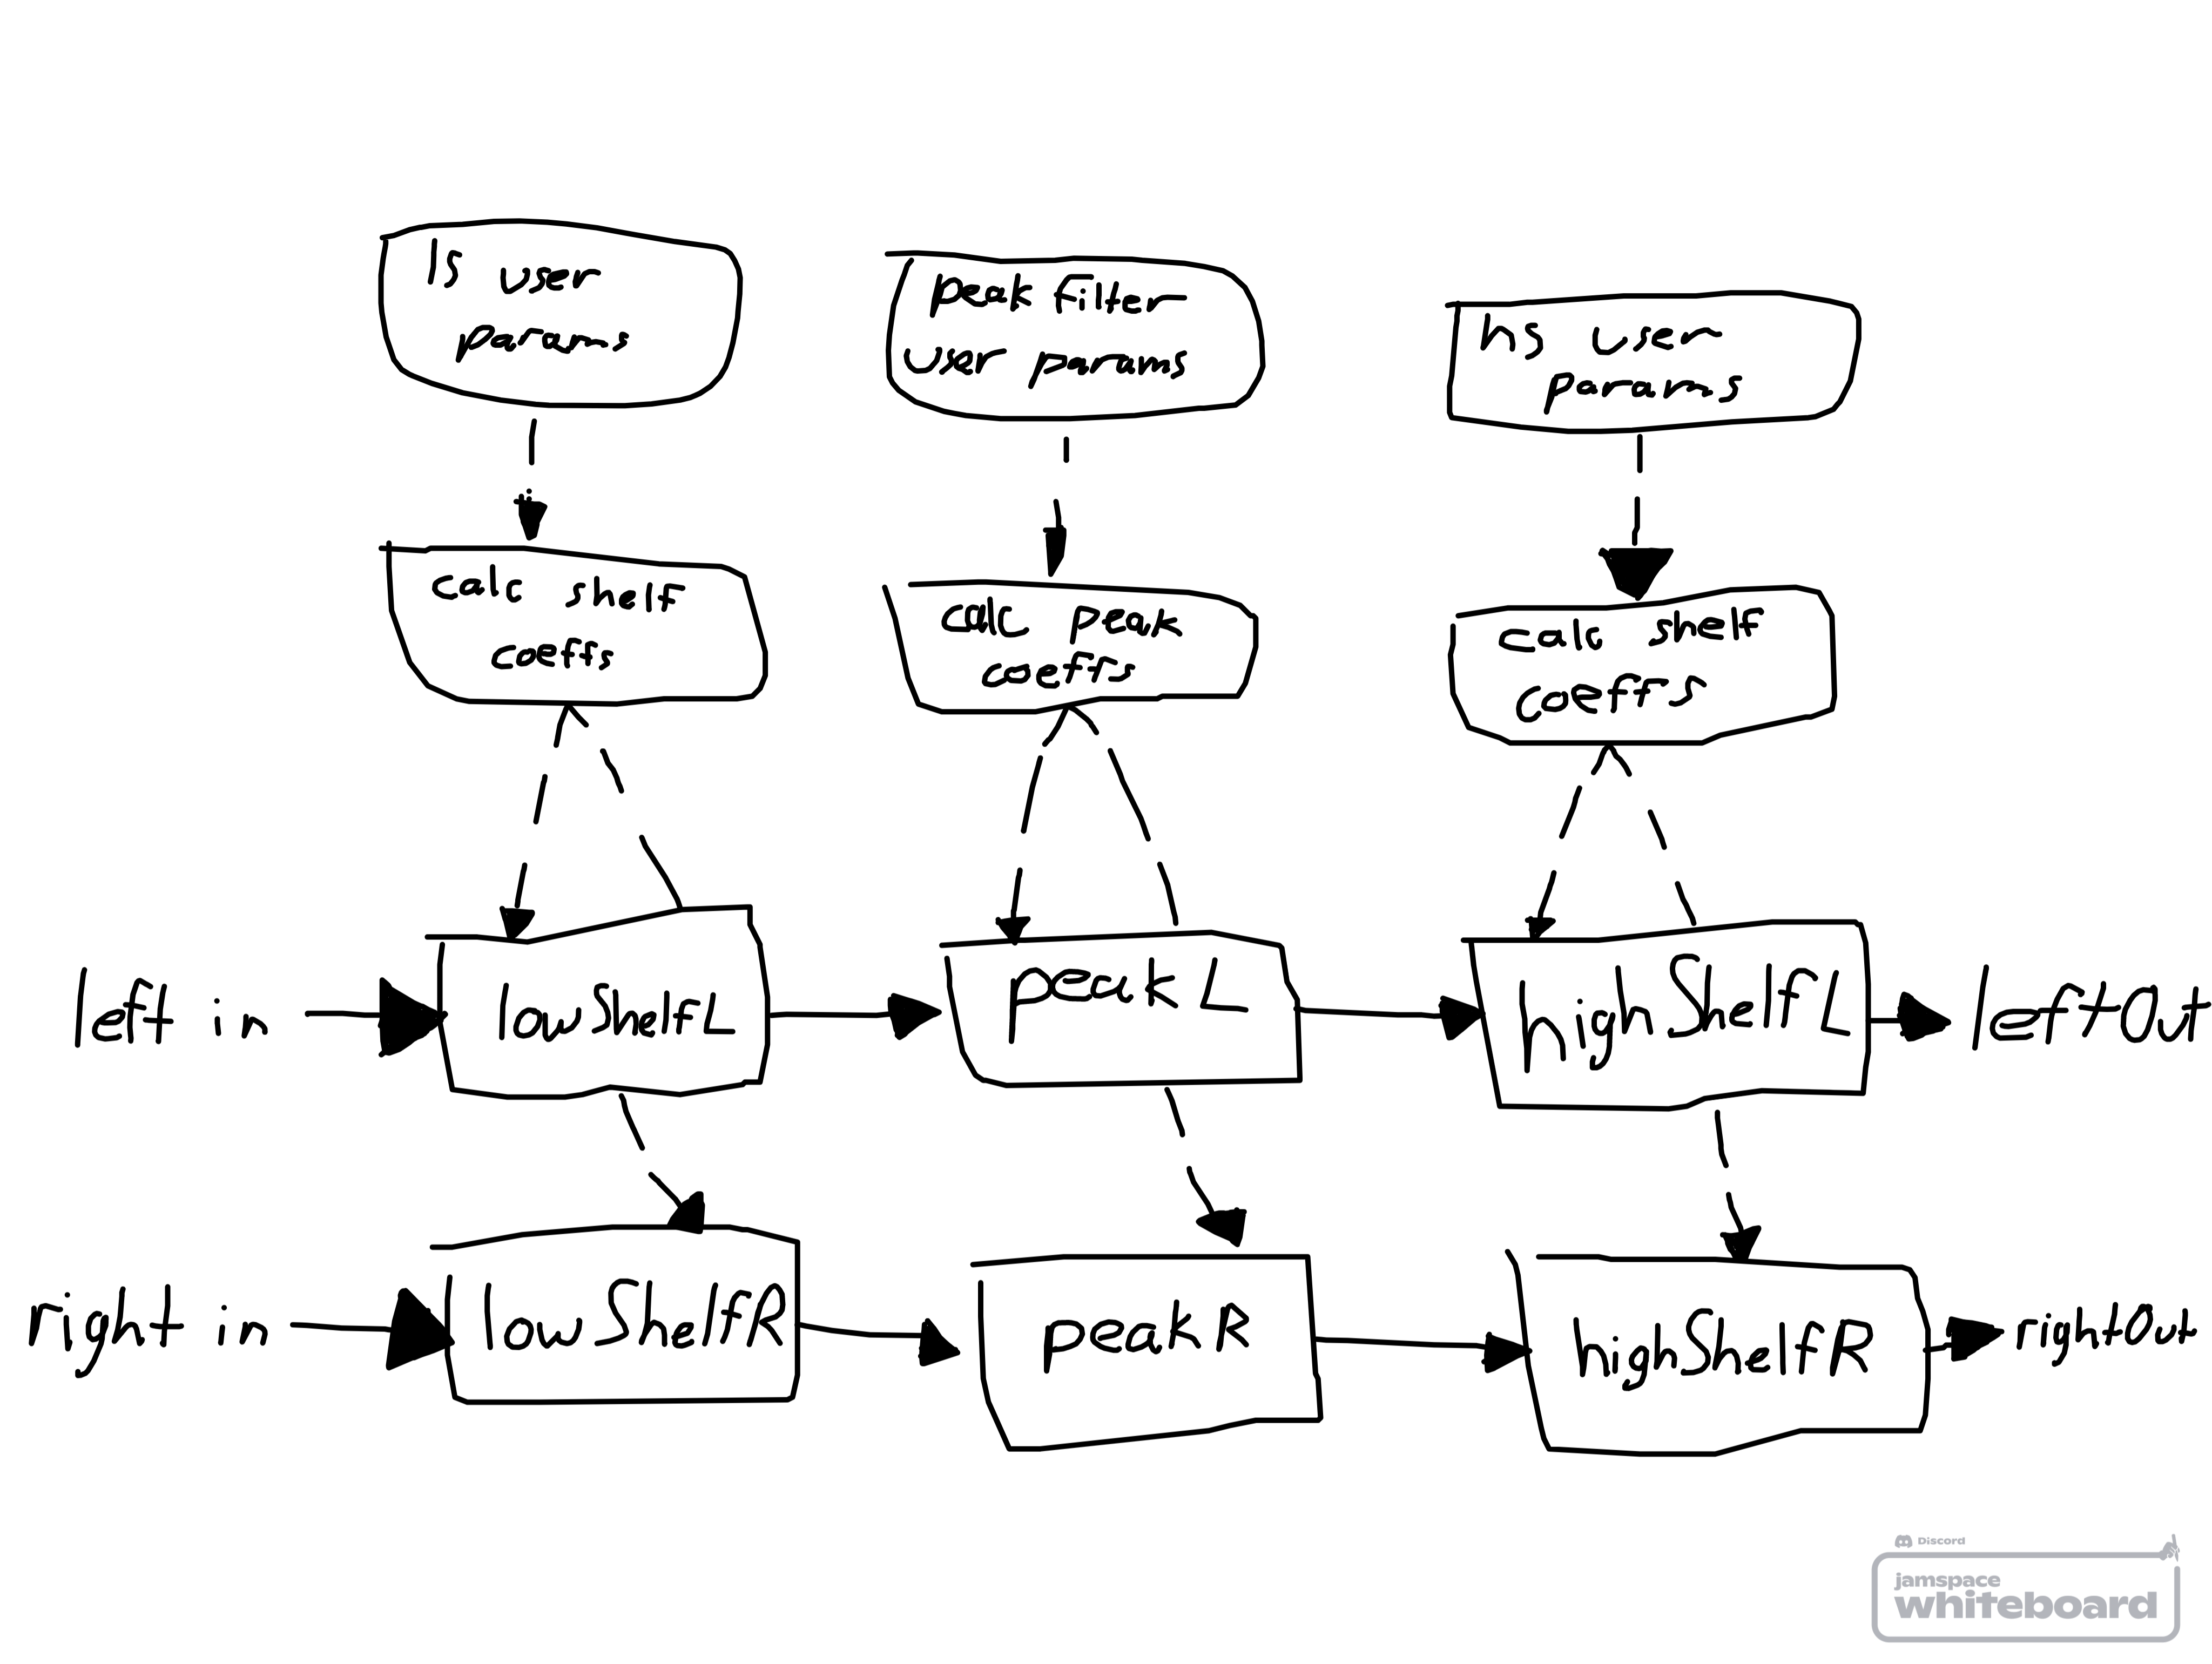 ls user
params
peak filter
user params
hs user
params
calc shelf
coeffs
calc peak
coeffs
calc shelf
coeffs
left in
lowShelfL
peakL
highShelfL
leftOut
right in
lowShelfR
peakR
highShelfR
rightOut
Discord
jamspace
whiteboard